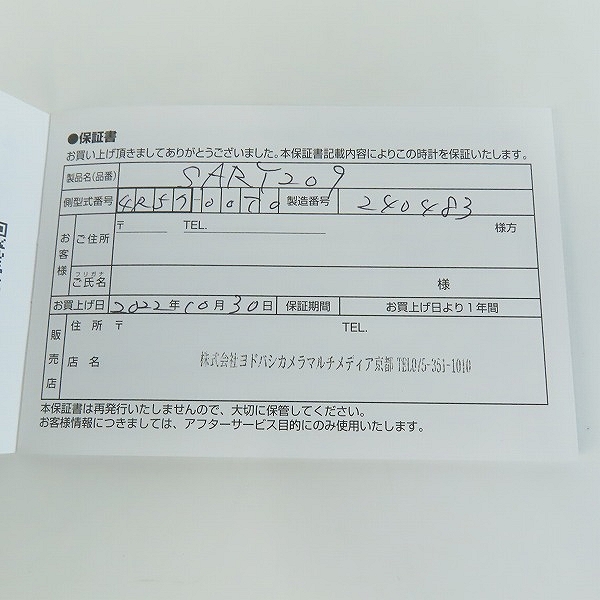 ●保証書
お買い上げ頂きましてありがとうございました。本保証書記載内容によりこの時計を保証いたします。
製品名(品番) SARY209
側型式番号 4R57-00T0 製造番号 240483
お客様 ご住所 〒 TEL. 様方
フリガナ
ご氏名 様
お買上げ日 2022年10月30日 保証期間 お買上げ日より1年間
販売店 住所 〒 TEL.
店名 株式会社ヨドバシカメラマルチメディア京都 TEL075-351-1010
本保証書は再発行いたしませんので、大切に保管してください。
お客様情報につきましては、アフターサービス目的にのみ使用いたします。